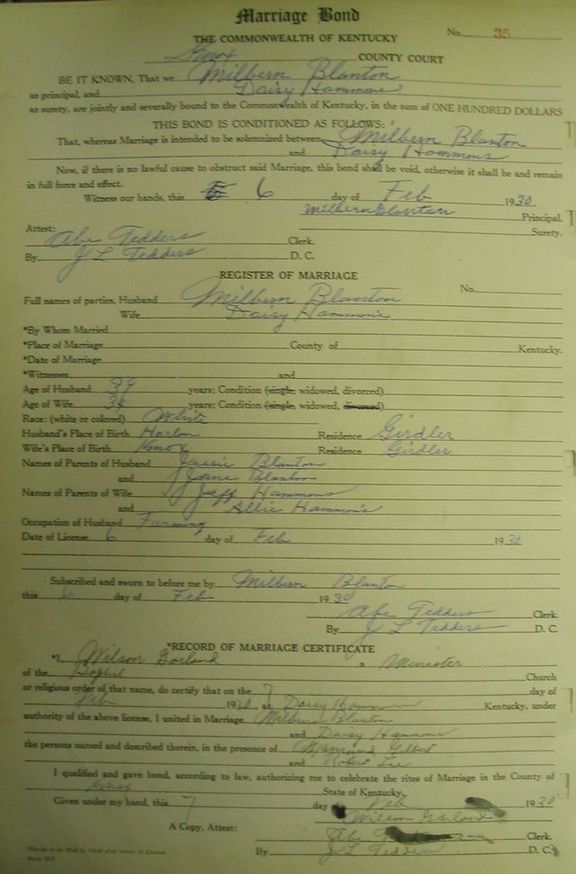 Marriage Bond
THE COMMONWEALTH OF KENTUCKY
No. 35
Knox COUNTY COURT
BE IT KNOWN, That we Milbern Blanton
as principal, and Daisy Hammons
as surety, are jointly and severally bound to the Commonwealth of Kentucky, in the sum of ONE HUNDRED DOLLARS
THIS BOND IS CONDITIONED AS FOLLOWS:
That, whereas Marriage is intended to be solemnized between Milbern Blanton
and Daisy Hammons
Now, if there is no lawful cause to obstruct said Marriage, this bond shall be void, otherwise it shall be and remain
in full force and effect.
Witness our hands, this 6 day of Feb 1930
Milbern Blanton Principal.
Surety.
Attest:
Abe Tedders Clerk.
By J L Tedders D. C.
REGISTER OF MARRIAGE
No.
Full names of parties, Husband Milbern Blanton
Wife Daisy Hammons
*By Whom Married
*Place of Marriage County of Kentucky.
*Date of Marriage
*Witnesses and
Age of Husband 39 years; Condition (single, widowed, divorced)
Age of Wife years; Condition (single, widowed, divorced)
Race: (white or colored) White
Husband's Place of Birth Harlan Residence Girdler
Wife's Place of Birth Knox Residence Girdler
Names of Parents of Husband Blanton
and Jane Blanton
Names of Parents of Wife Jeff Hammons
and Allie Hammons
Occupation of Husband Farming
Date of License 6 day of Feb 1930
Subscribed and sworn to before me by Milbern Blanton
this 6 day of Feb 1930
Abe Tedders Clerk.
By J L Tedders D. C.
*RECORD OF MARRIAGE CERTIFICATE
*I, Wilson Garland a Minister
of the Baptist Church
or religious order of that name, do certify that on the 7 day of
Feb 1930, at Daisy Hammons Kentucky, under
authority of the above license, I united in Marriage Milbern Blanton
and Daisy Hammons
the persons named and described therein, in the presence of Gilbert
and Robert Lee
I qualified and gave bond, according to law, authorizing me to celebrate the rites of Marriage in the County of
Knox State of Kentucky.
Given under my hand, this 7 day Feb 1930
Wilson Garland
A Copy, Attest: Abe Clerk.
By J L Tedders D. C.